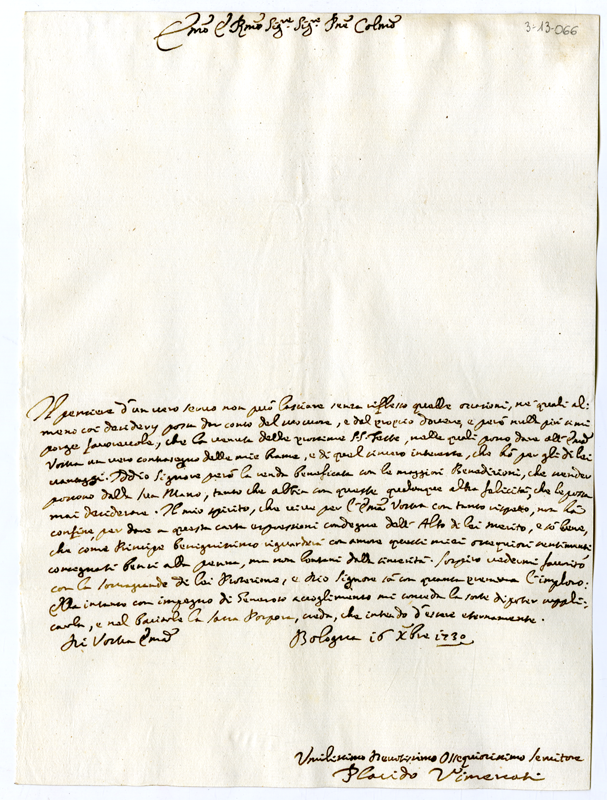 3-13-066
Em̃o e Rmo Sig.re Sig.re Prñe Colmo
Il pensiere d'un vero servo non può lasciare senza riflesso quelle occasioni, ne' quali al:
meno coi desiderij possa dar conto del suo cuore, e del proprio dovere, e però nulla più
porge favorevole, che la venuta delle prossime SS. Feste, nelle quali posso dare all' Em̃za
Vostra un vero contrasegno delle mie brame, e di quel sincero interesse, che hò per gli di lei
vantaggi. Iddio Signore però la renda beneficata con le maggiori Benedizioni, che render
possono dalla sua Mano, tanto che abbia con queste qualunque altra felicità, che le possa
mai desiderare. Il mio spirito, che vive per l'Em̃za Vostra con tanto rispetto, non hà
confine per dare a questa carta espressioni condegne dell' Alto di lei merito, e sò bene,
che come Principe benignissimo riguarderà con amore questi miei ossequiosi sentimenti
consegnati bensì alla penna, ma non lontani dalla sincerità. Sospiro vedermi favorito
con la sovragrande di lei Protezione, e Dio Signore sà con quanta premura l'imploro:
Ella intanto con impegno di Generoso accoglimento mi conceda la sorte di poter suppli:
carla, e nel baciarle la Sacra Porpora, creda, che intendo d'essere eternamente.
Di Vostra Em̃za
Bologna 16 Xbre 1730
Umilissimo Devotissimo Ossequiosissimo Servitore
Placido Vimercati